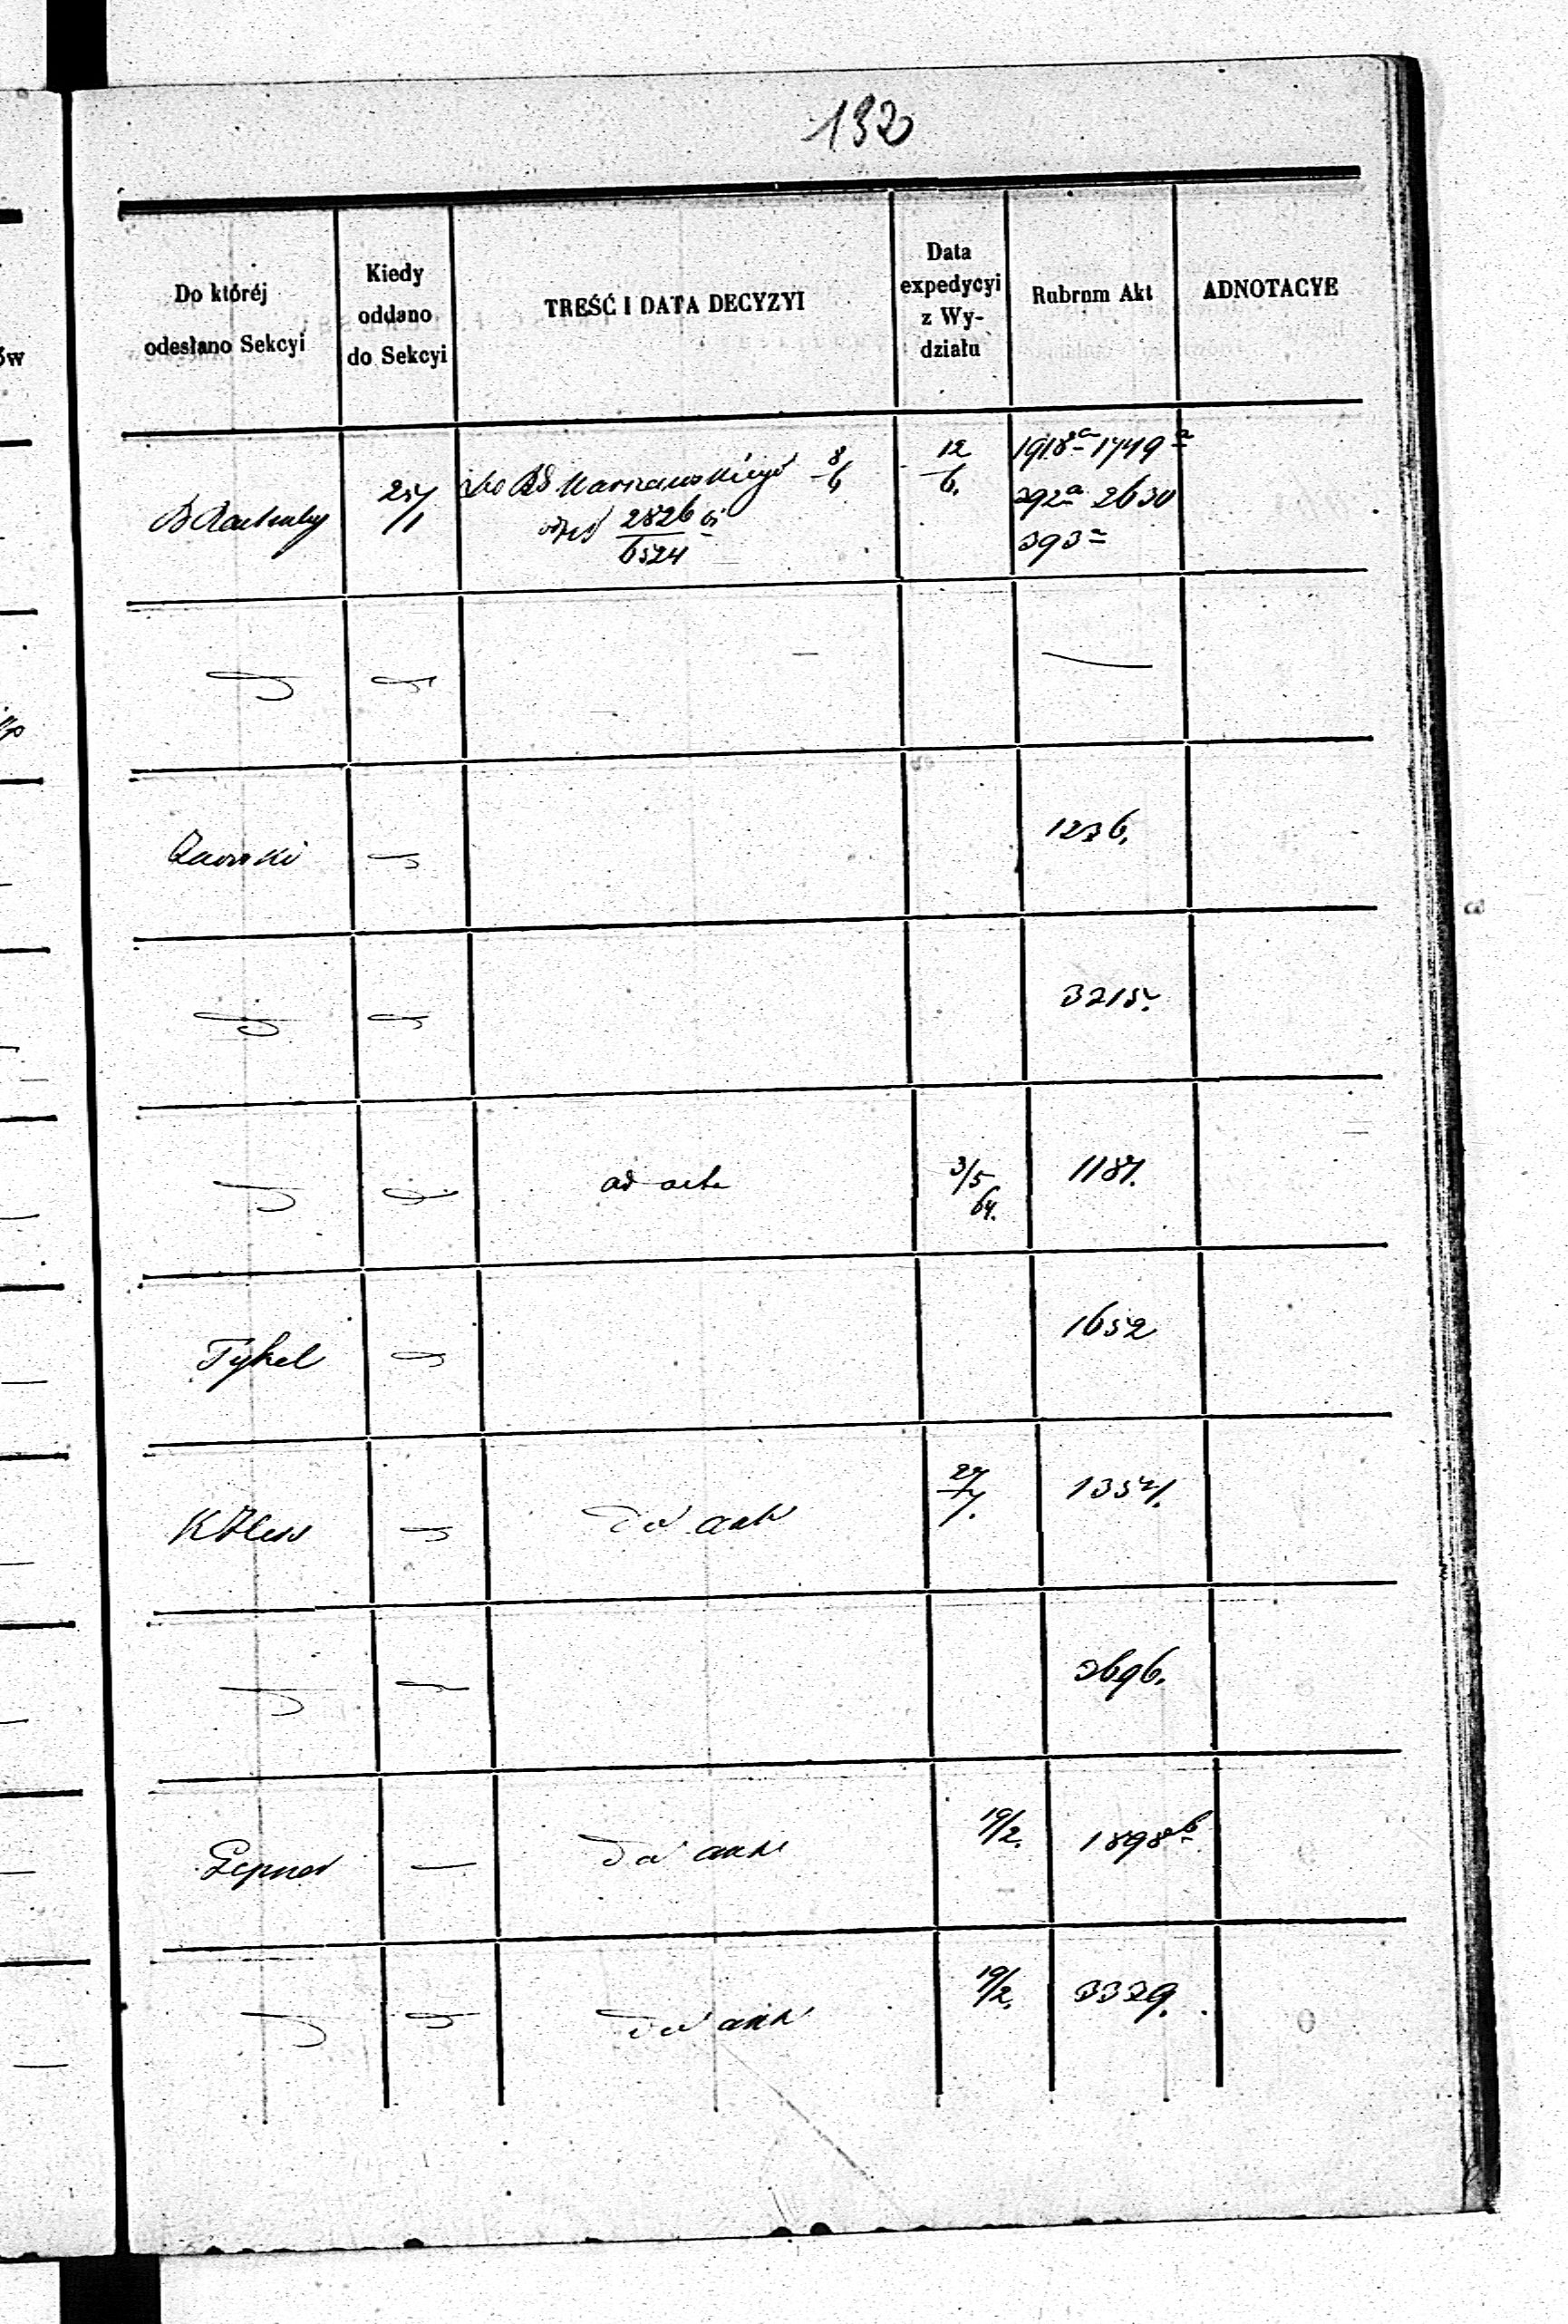 132
Do któréj
odesłano Sekcyi
Kiedy
oddano
do Sekcyi
TREŚĆ I DATA DECYZYI
Data
expedycyi
z Wy-
działu
Rubrum Akt
ADNOTACYE
25/1
do Warszawskiego 8/6
2826
6524
12/6.
1918a 1749a
292a 2630
393a
1236.
3215.
ad acta
3/5
64.
1187.
Tykel
1652
do akt
27/7.
1357.
2696.
Gepner
—
do akt
19/2.
1898b
do akt
19/2.
3329.